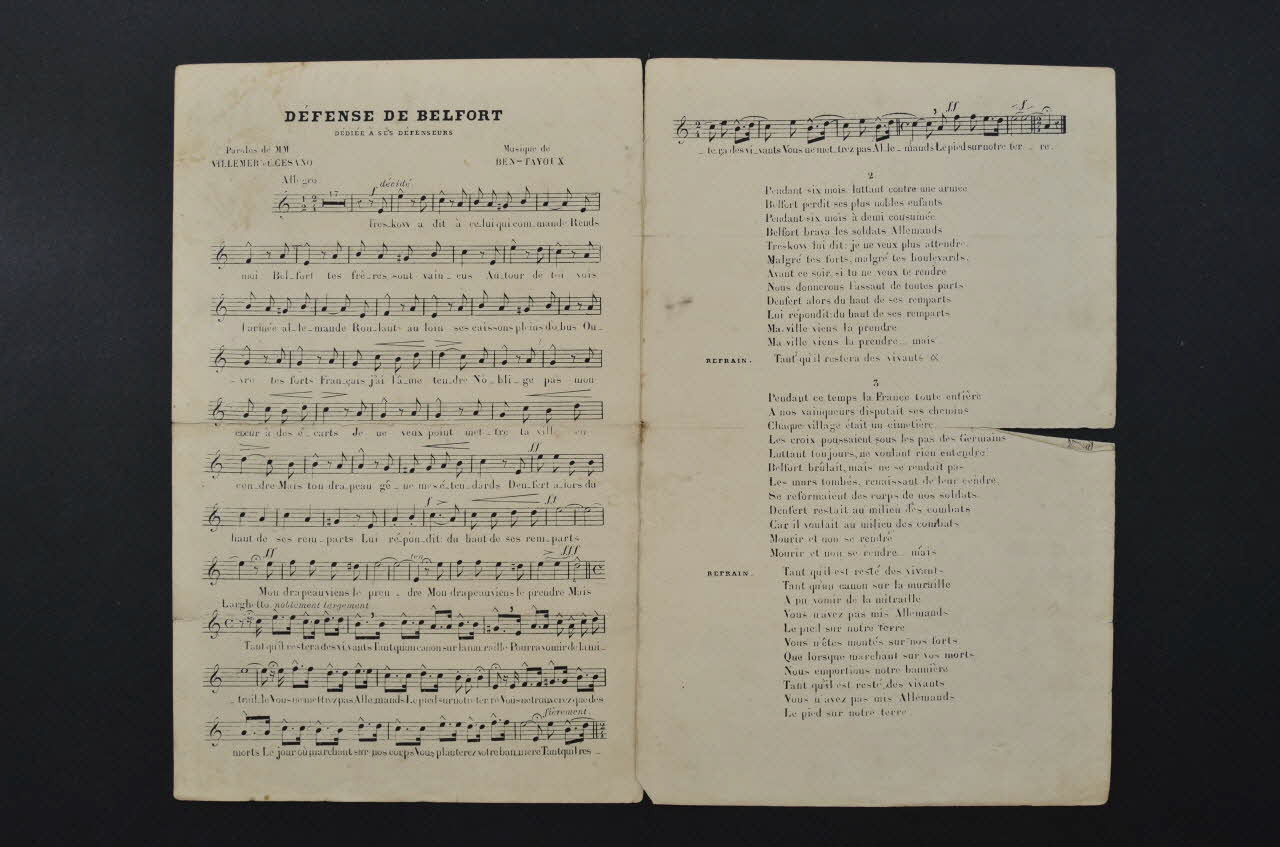 DÉFENSE DE BELFORT
DÉDIÉE À SES DÉFENSEURS
Paroles de MM
VILLEMER et CESANO
Musique de
BEN TAYOUX
Allegro.
décidé
17
f
Tres_kow a dit à ce_lui qui com_mande Rends
moi Bel_fort tes frè_res sont vain_cus Au_tour de toi vois
l'armée al_le_mande Rou_lants au loin ses caissons pleins d'o_bus Ou_
_vre tes forts Français j'ai l'â_me ten_dre N'o_bli_ge pas mon
cœur à des é_carts Je ne veux point met_tre ta ville en
ff
cen_dre Mais ton dra_peau gê_ne mes é_ten_dards Den_fert a_lors du
f
ff
haut de ses rem_parts Lui ré_pon_dit: du haut de ses rem_parts
ff
ten
fff
Mon drapeau viens le pren_dre Mon drapeau viens le prendre Mais
Larghetto noblement largement
Tant qu'il restera des vi_vants Tant qu'un canon sur la muraille Pourra vomir de la mi_
_trail_le Vous ne mettrez pas Alle_mands Le pied sur notre ter_re Vous ne trouverez que des
fièrement.
morts Le jour où marchant sur nos corps Vous planterez votre ban_nière Tant qu'il res_
ff
f
_te_ra des vi_vants Vous ne met_trez pas Al_le_mands Le pied sur notre ter_re.
2
Pendant six mois, luttant contre une armée
Belfort perdit ses plus nobles enfants
Pendant six mois à demi consumée
Belfort brava les soldats Allemands
Treskow lui dit: je ne veux plus attendre,
Malgré tes forts, malgré tes boulevards,
Avant ce soir, si tu ne veux te rendre
Nous donnerons l'assaut de toutes parts
Denfert alors du haut de ses remparts
Lui répondit: du haut de ses remparts
Ma ville viens la prendre
Ma ville viens la prendre... mais
REFRAIN. Tant qu'il restera des vivants &
3
Pendant ce temps la France toute entière
A nos vainqueurs disputait ses chemins
Chaque village était un cimetière
Les croix poussaient sous les pas des Germains
Luttant toujours, ne voulant rien entendre
Belfort brûlait, mais ne se rendait pas
Les murs tombés, renaissant de leur cendre,
Se reformaient des corps de nos soldats.
Denfert restait au milieu des combats
Car il voulait au milieu des combats
Mourir et non se rendre
Mourir et non se rendre... mais
REFRAIN. Tant qu'il est resté des vivants
Tant qu'un canon sur la muraille
A pu vomir de la mitraille
Vous n'avez pas mis Allemands
Le pied sur notre terre
Vous n'êtes montés sur nos forts
Que lorsque marchant sur vos morts
Nous emportions notre bannière
Tant qu'il est resté des vivants
Vous n'avez pas mis Allemands
Le pied sur notre terre.